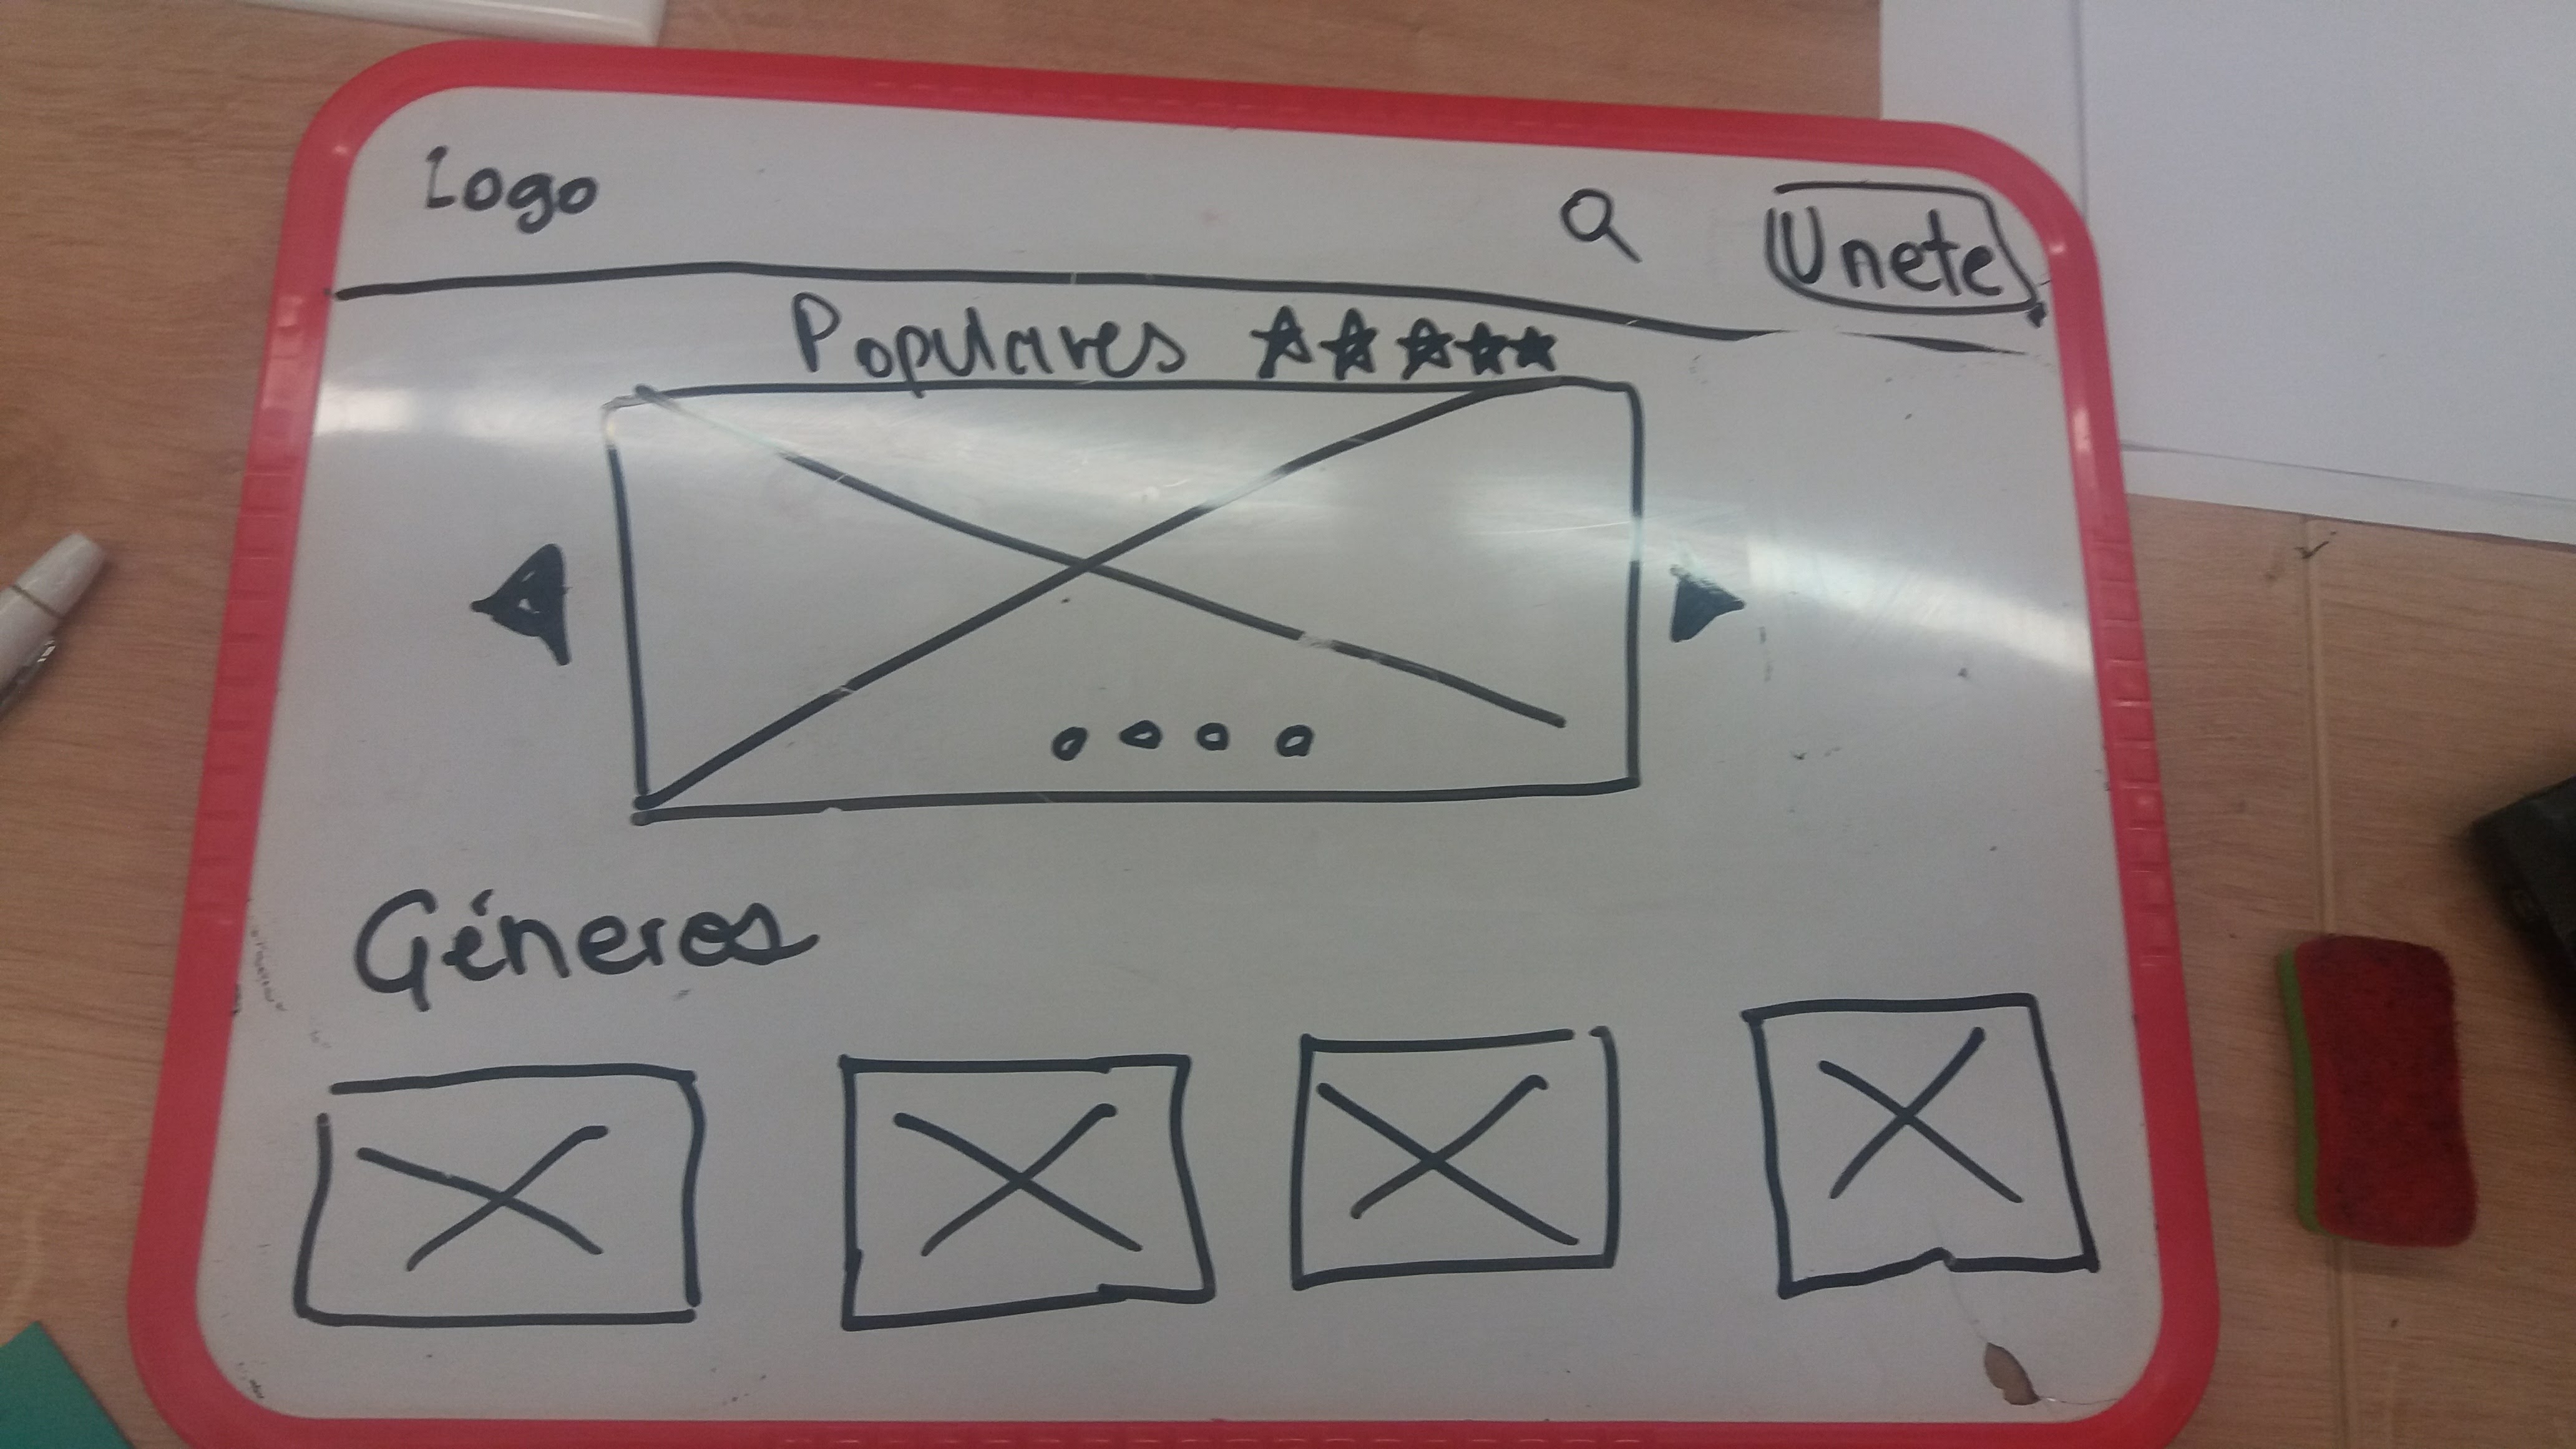 Logo
Unete
Populares
Géneros